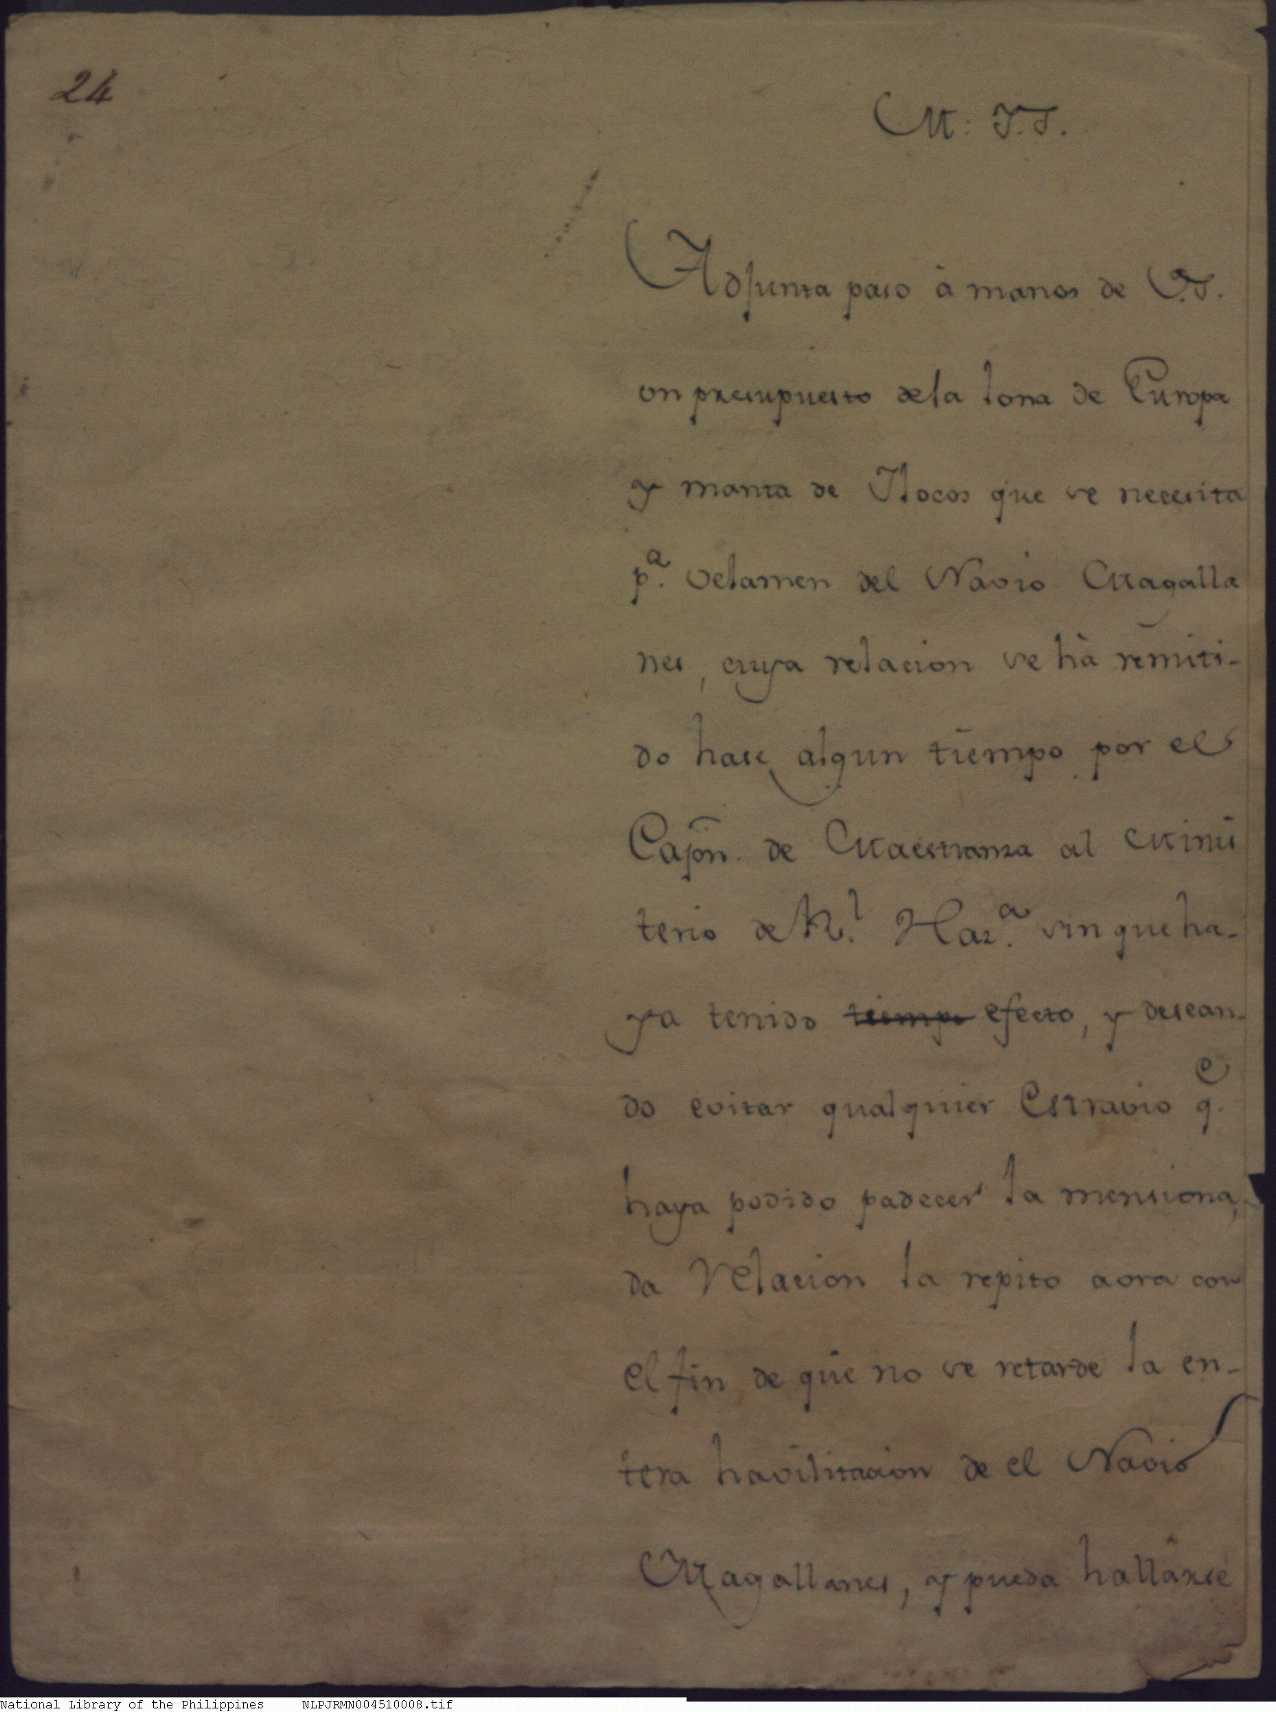 24
M: I. S.
Adjunta paso à manos de V.S.
un presupuesto dela lona de Europa
y manta de Ilocos que se necesita
p.a velamen del Navio Magalla
nes, cuya relacion se hà remiti-
do hase algun tiempo por el
Cajon de Maestranza al Minis
terio de R.l Haz.a sin que ha-
ya tenido tiempo efecto, y desean-
do evitar qualquier estravio q.e
haya podido padecer la mensiona-
da relacion la repito aora con
el fin de que no se retarde la en-
tera havilitacion de el Navio
Magallanes, y pueda hallarse
National Library of the Philippines NLPJRMN004510008.tif